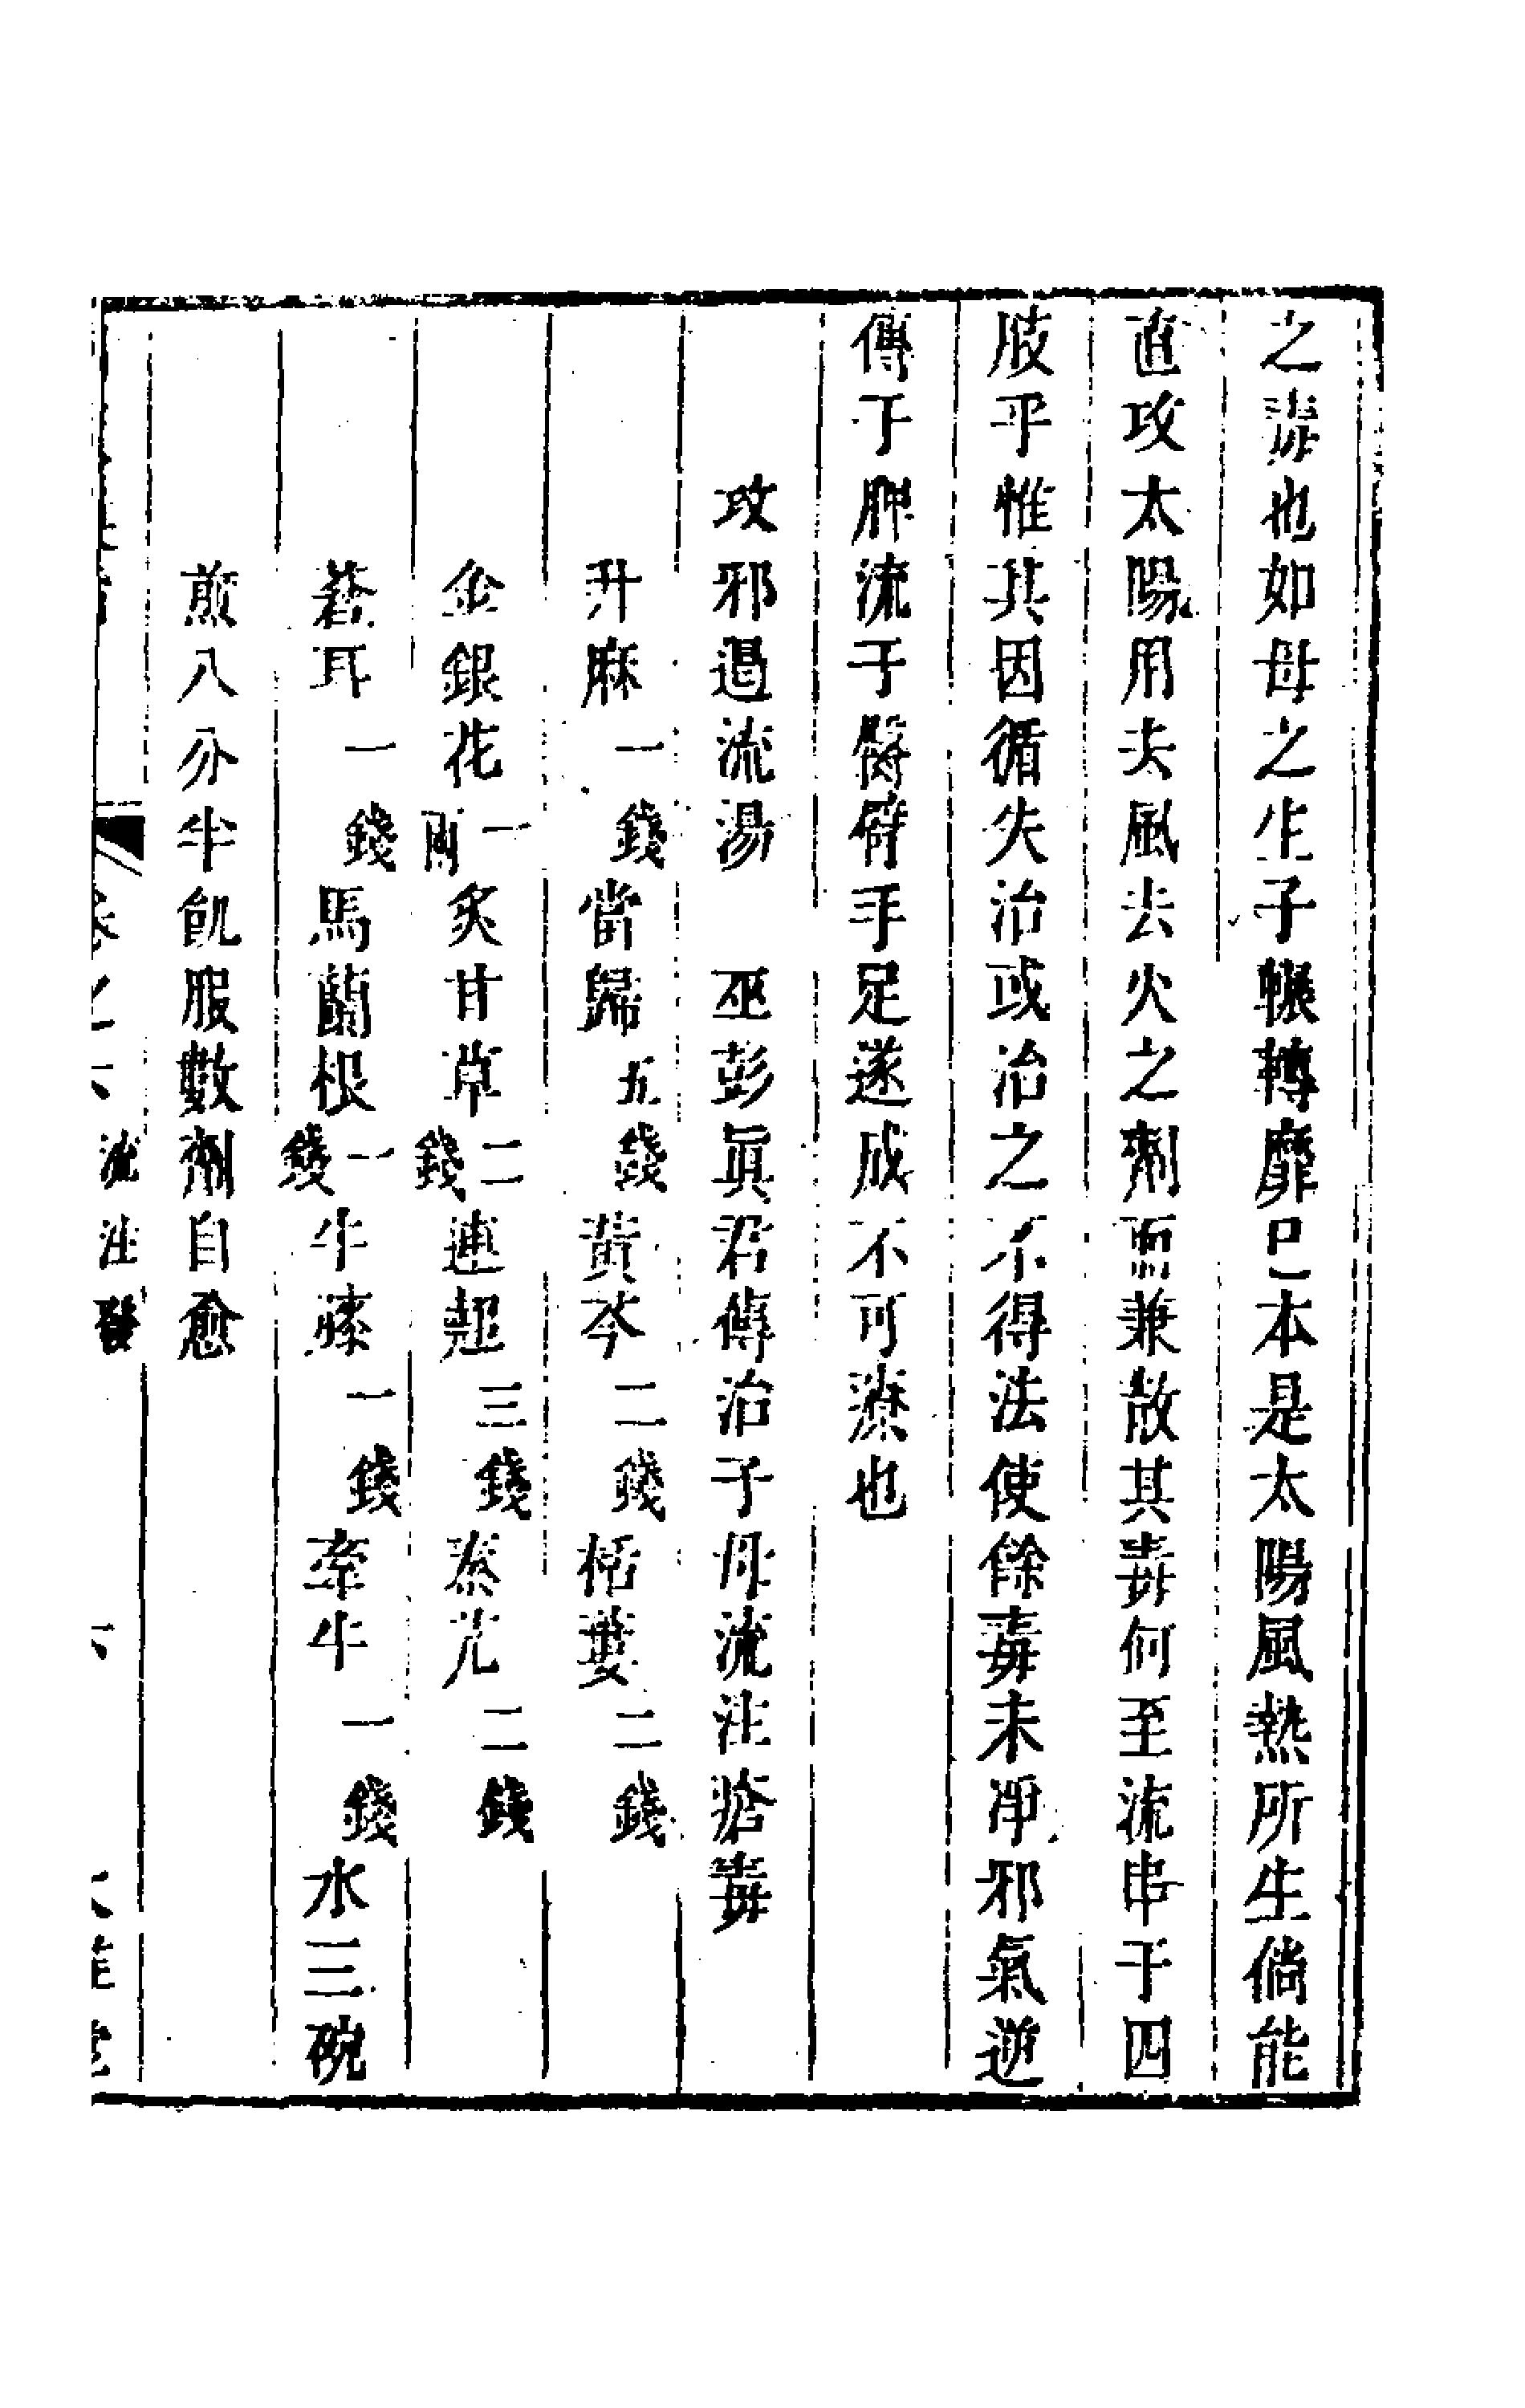 之毒也如母之生子輾轉靡已本是太陽風熱所生倘能
直攻太陽用去風去火之劑而兼散其毒何至流串于四
肢乎惟其因循失治或治之不得法使餘毒未凈邪氣逆
傳于脾流于臀臂手足遂成不可療也
攻邪遏流湯　巫彭真君傳治子母流注瘡毒
升麻一錢當歸五錢黃芩二錢栝蔞二錢
金銀花一兩炙甘草二錢連翹三錢秦艽二錢
蒼耳一錢馬蘭根一錢牛膝一錢牽牛一錢水三碗
煎八分半飢服數劑自愈
卷之 流注